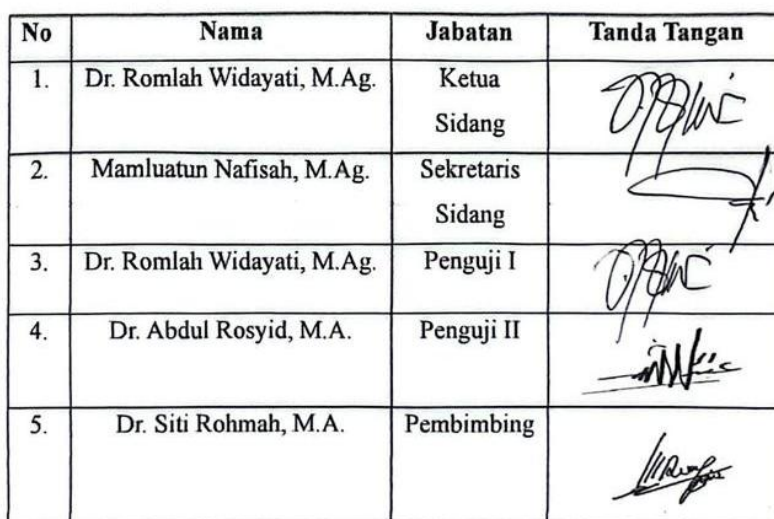 No Nama Jabatan Tanda Tangan
1. Dr. Romlah Widayati, M.Ag. Ketua
Sidang
2. Mamluatun Nafisah, M.Ag. Sekretaris
Sidang
3. Dr. Romlah Widayati, M.Ag. Penguji I
4. Dr. Abdul Rosyid, M.A. Penguji II
5. Dr. Siti Rohmah, M.A. Pembimbing